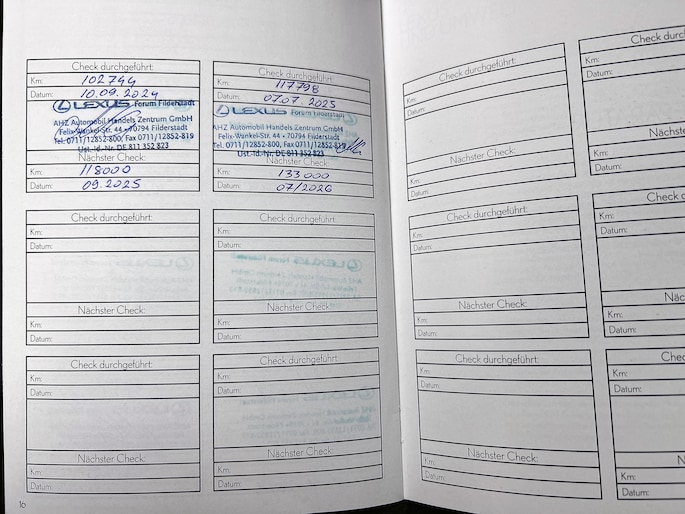 Check durchgeführt:
Km: 102744
Datum: 10.09.2024
LEXUS Forum Filderstadt
AHZ Automobil Handels Zentrum GmbH
Felix-Wankel-Str. 44 • 70794 Filderstadt
Tel. 0711/12852-800, Fax 0711/12852-819
Ust.-Id.-Nr. DE 811 352 823
Nächster Check:
Km: 118000
Datum: 09.2025
Check durchgeführt:
Km: 117798
Datum: 07.07.2025
LEXUS Forum Filderstadt
AHZ Automobil Handels Zentrum GmbH
Felix-Wankel-Str. 44 • 70794 Filderstadt
Tel. 0711/12852-800, Fax 0711/12852-819
Ust.-Id.-Nr. DE 811 352 823
Nächster Check:
Km: 133000
Datum: 07/2026
Check durchgeführt:
Km:
Datum:
Nächster Check:
Km:
Datum:
Check durchgeführt:
Km:
Datum:
Nächster Check:
Km:
Datum:
Check durchgeführt:
Km:
Datum:
Nächster Check:
Km:
Datum:
Check durchgeführt:
Km:
Datum:
Nächster Check:
Km:
Datum:
16
Check durchgeführt:
Km:
Datum:
Nächster Check:
Km:
Datum:
Check durchgeführt:
Km:
Datum:
Nächster
Km:
Datum:
Check durchgeführt:
Km:
Datum:
Nächster Check:
Km:
Datum:
Check d
Km:
Datum:
Näc
Km:
Datum:
Check durchgeführt:
Km:
Datum:
Nächster Check:
Km:
Datum:
Chec
Km:
Datum:
N
Km:
Datum: